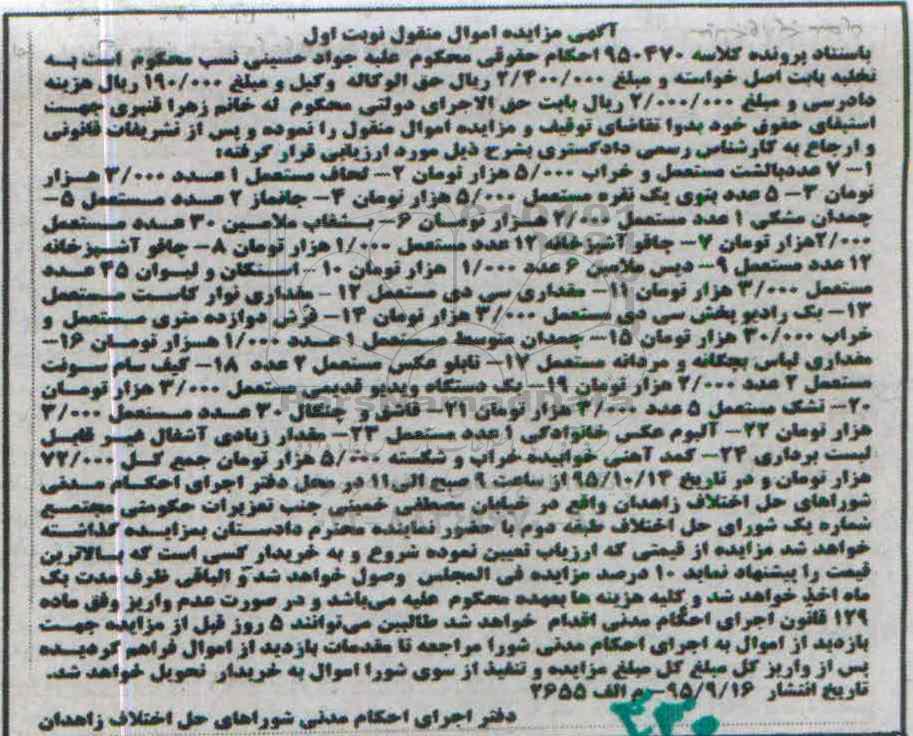 آگهی مزایده اموال منقول نوبت اول
باستناد پرونده کلاسه ۹۵۰۴۷۰ احکام حقوقی محکوم علیه جواد حسینی نسب محکوم است به
تخلیه بابت اصل خواسته و مبلغ ۲/۴۰۰/۰۰۰ ریال حق الوکاله وکیل و مبلغ ۱۹۰/۰۰۰ ریال هزینه
دادرسی و مبلغ ۲/۰۰۰/۰۰۰ ریال بابت حق الاجرای دولتی محکوم له خانم زهرا قنبری جهت
استیفای حقوق خود بدوا تقاضای توقیف و مزایده اموال منقول را نموده و پس از تشریفات قانونی
و ارجاع به کارشناس رسمی دادگستری بشرح ذیل مورد ارزیابی قرار گرفته:
۱- ۷ عددبالشت مستعمل و خراب ۵/۰۰۰ هزار تومان ۲- لحاف مستعمل ۱ عدد ۳/۰۰۰ هزار
تومان ۳- ۵ عدد پتوی یک نفره مستعمل ۵/۰۰۰ هزار تومان ۴- جانماز ۲ عدد مستعمل ۵-
چمدان مشکی ۱ عدد مستعمل ۲/۰۰۰ هزار تومان ۶- بشقاب ملامین ۳۰ عدد مستعمل
۲/۰۰۰هزار تومان ۷- چاقو آشپزخانه ۱۲ عدد مستعمل ۱/۰۰۰ هزار تومان ۸- چاقو آشپزخانه
۱۲ عدد مستعمل ۹- دیس ملامین ۶ عدد ۱/۰۰۰ هزار تومان ۱۰- استکان و لیوان ۳۵ عدد
مستعمل ۳/۰۰۰ هزار تومان ۱۱- مقداری سی دی مستعمل ۱۲- مقداری نوار کاست مستعمل
۱۳- یک رادیو پخش سی دی مستعمل ۳/۰۰۰ هزار تومان ۱۴- فرش دوازده متری مستعمل و
خراب ۳۰/۰۰۰ هزار تومان ۱۵- چمدان متوسط مستعمل ۱ عدد ۱/۰۰۰ هزار تومان ۱۶-
مقداری لباس بچگانه و مردانه مستعمل ۱۷- تابلو عکس مستعمل ۲ عدد ۱۸- کیف سام سونت
مستعمل ۲ عدد ۲/۰۰۰ هزار تومان ۱۹- یک دستگاه ویدیو قدیمی مستعمل ۳/۰۰۰ هزار تومان
۲۰- تشک مستعمل ۵ عدد ۳/۰۰۰ هزار تومان ۲۱- قاشق و چنگال ۳۰ عدد مستعمل ۳/۰۰۰
هزار تومان ۲۲- آلبوم عکس خانوادگی ۱ عدد مستعمل ۲۳- مقدار زیادی آشغال غیر قابل
لیست برداری ۲۴- کمد آهنی خوابیده خراب و شکسته ۵/۰۰۰ هزار تومان جمع کل ۷۲/۰۰۰
هزار تومان و در تاریخ ۹۵/۱۰/۱۴ از ساعت ۹ صبح الی۱۱ در محل دفتر اجرای احکام مدنی
شوراهای حل اختلاف زاهدان واقع در خیابان مصطفی خمینی جنب تعزیرات حکومتی مجتمع
شماره یک شورای حل اختلاف طبقه دوم با حضور نماینده محترم دادستان بمزایده گذاشته
خواهد شد مزایده از قیمتی که ارزیاب تعیین نموده شروع و به خریدار کسی است که بالاترین
قیمت را پیشنهاد نماید ۱۰ درصد مزایده فی المجلس وصول خواهد شد و الباقی ظرف مدت یک
ماه اخذ خواهد شد و کلیه هزینه ها بعهده محکوم علیه می‌باشد و در صورت عدم واریز وفق ماده
۱۲۹ قانون اجرای احکام مدنی اقدام خواهد شد طالبین می‌توانند ۵ روز قبل از مزایده جهت
بازدید از اموال به اجرای احکام مدنی شورا مراجعه تا مقدمات بازدید از اموال فراهم گردیده
پس از واریز کل مبلغ کل مبلغ مزایده و تنفیذ از سوی شورا اموال به خریدار تحویل خواهد شد.
تاریخ انتشار ۹۵/۹/۱۶- م الف ۲۶۵۵
دفتر اجرای احکام مدنی شوراهای حل اختلاف زاهدان